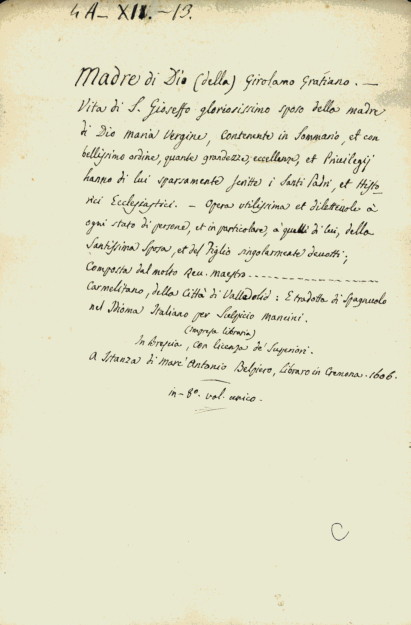 4A-XII.-13.
Madre di Dio (della) Girolamo Gratiano. —
Vita di S. Gioseffo gloriosissimo sposo della madre
di Dio Maria Vergine, contenente in Sommario, et con
bellissimo ordine, quante grandezze, eccellenze, et Privilegij
hanno di lui sparsamente scritto i Santi Padri, et Histo
rici Ecclesiastici. — Opera utilissima et dilettevole à
ogni stato di persone, et in particolare, à quelli di lui, della
Santissima Sposa, et del Figlio singolarmente devotti;
Composta dal molto Rev. maestro --------------------
Carmelitano, della Città di Valladolid: E tradotta di Spagnuolo
nel Idioma Italiano per Sulpicio Mancini.
(impresa libraria)
In Brescia, con licenza de' Superiori.
A Istanza di Marc' Antonio Belpiero, Libraro in Cremona. 1606.
in-8º. vol. unico.
C